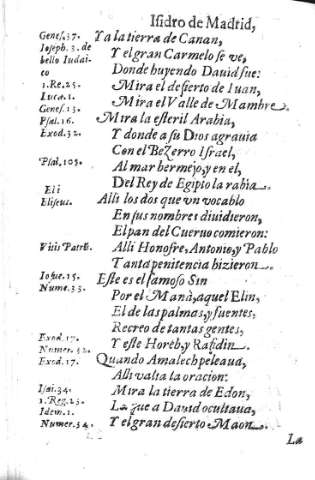 Isidro de Madrid,
Genes.37. Y a la tierra de Canan,
Ioseph. 3. de Y el gran Carmelo se ve,
bello Iudai- Donde huyendo Dauid fue:
co
1.Re.25. Mira el desierto de Iuan,
Luca.1. Mira el Valle de Mambre.
Genes.13.
Psal.16. Mira la esteril Arabia,
Exod.32. Y donde a su Dios agrauia
Con el Bezerro Israel,
Psal.105. Al mar bermejo, y en el,
Del Rey de Egipto la rabia.
Eli
Eliseus. Alli los dos que un vocablo
En sus nombres diuidieron,
El pan del Cueruo comieron:
Vitis Patrū. Alli Honofre, Antonio, y Pablo
Tanta penitencia hizieron.
Iosue.15. Este es el famoso Sin
Nume.33. Por el Manà, aquel Elin,
El de las palmas, y fuentes,
Recreo de tantas gentes,
Exod.17. Y este Horeb, y Rafidin.
Numer.32.
Exod.17. Quando Amalech peleaua,
Alli valta la oracion:
Isai.34. Mira la tierra de Edon,
1.Reg.23. La que a Dauid ocultaua,
Idem.1.
Numer.34. Y el gran desierto Maon.
La